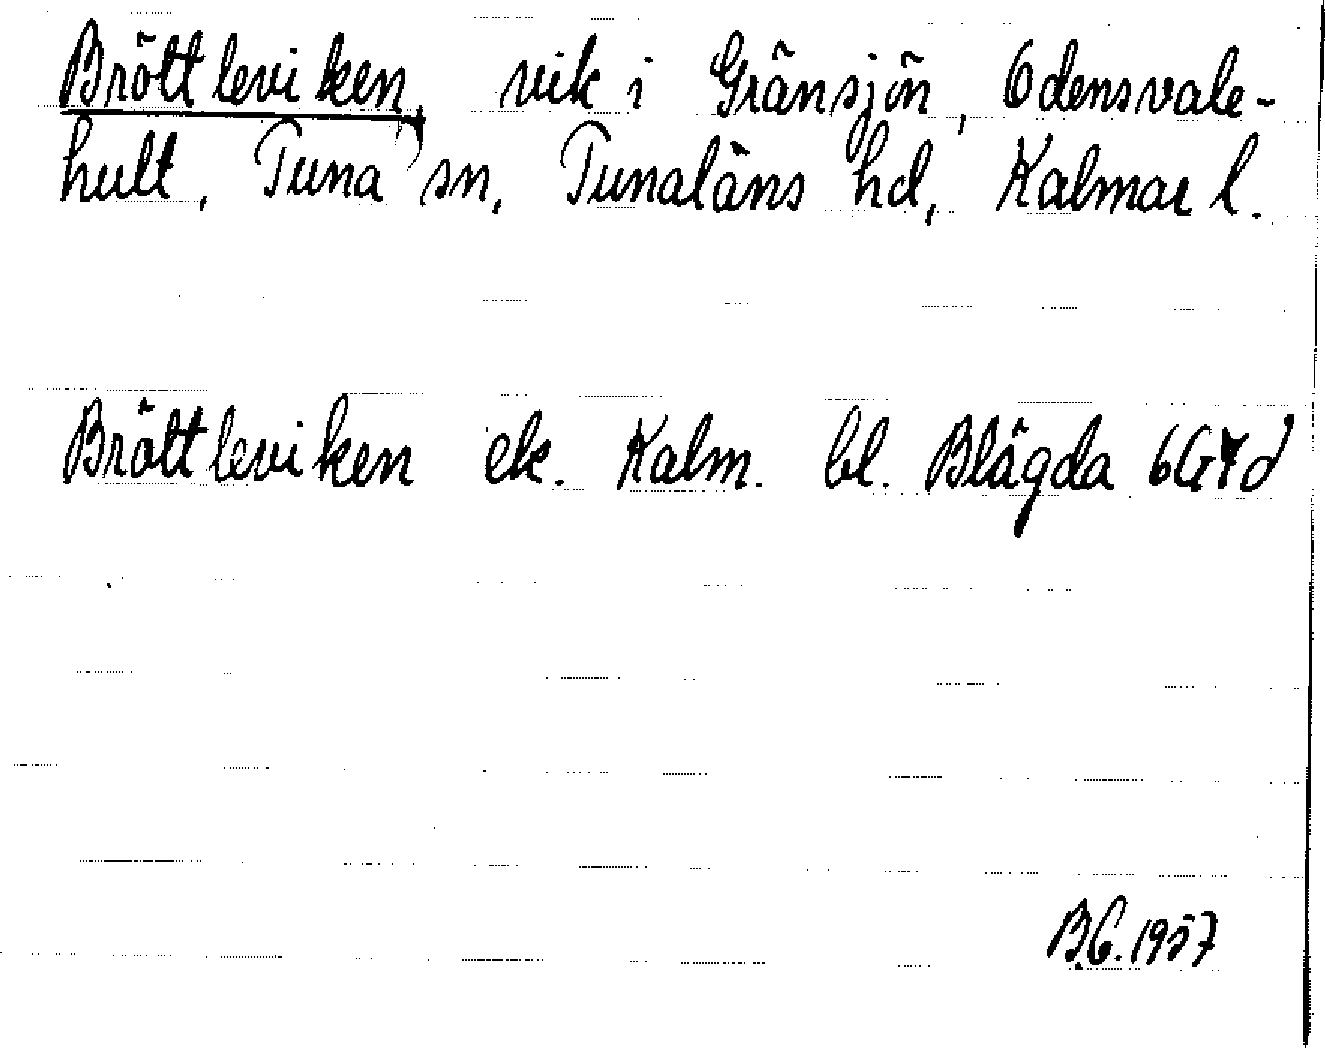 Bröttleviken, vik i Gränsjön, Odensvale-
hult, Tuna sn, Tunaläns hd, Kalmar l.
Bröttleviken ek. Kalm. bl. Blägda 6G7d
B.C. 1957